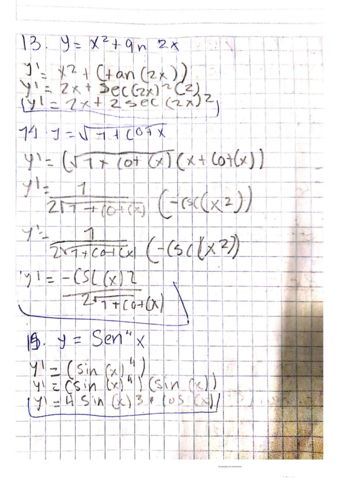 13. y = x² + 9n 2x
y' = x² + (tan(2x))
y' = 2x + sec(2x)²(2)
y' = 2x + 2 sec(2x)2
14. y = √1 + cotx
y' = (√1 + cot(x) (x + cot(x))
y' = 1 / 2√1 + cot(x) (-csc(x2))
y' = 1 / 2√1 + cot(x) (-csc(x2))
y' = -csc(x)2 / 2√1 + cot(x)
15. y = Sen⁴x
y' = (sin(x)⁴)
y' = (sin(x)⁴)(sin(x))
y' = 4 sin(x)3 • cos(x)